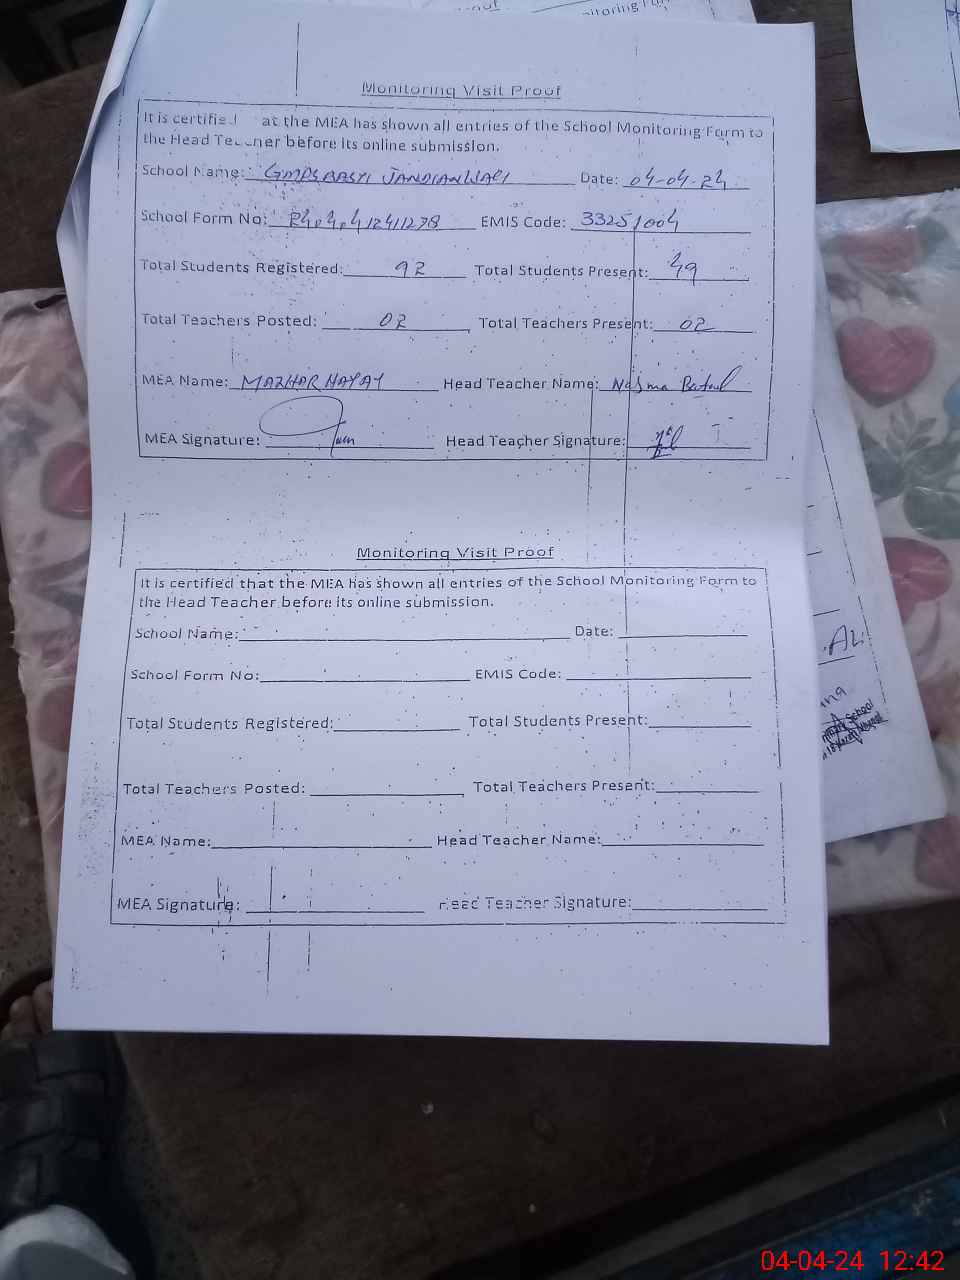 Monitoring Visit Proof
It is certified at the MEA has shown all entries of the School Monitoring Form to
the Head Teacher before its online submission.
School Name: GMPS BASTI JANDIANWALI Date: 04-04-24
School Form No: EMIS Code: 33251004
Total Students Registered: 92 Total Students Present: 49
Total Teachers Posted: 02 Total Teachers Present: 02
MEA Name: MAZHAR HAYAT Head Teacher Name: Najma Batool
MEA Signature: Head Teacher Signature:
Monitoring Visit Proof
It is certified that the MEA has shown all entries of the School Monitoring Form to
the Head Teacher before its online submission.
School Name: Date:
School Form No: EMIS Code:
Total Students Registered: Total Students Present:
Total Teachers Posted: Total Teachers Present:
MEA Name: Head Teacher Name:
MEA Signature: Head Teacher Signature:
School
04-04-24 12:42